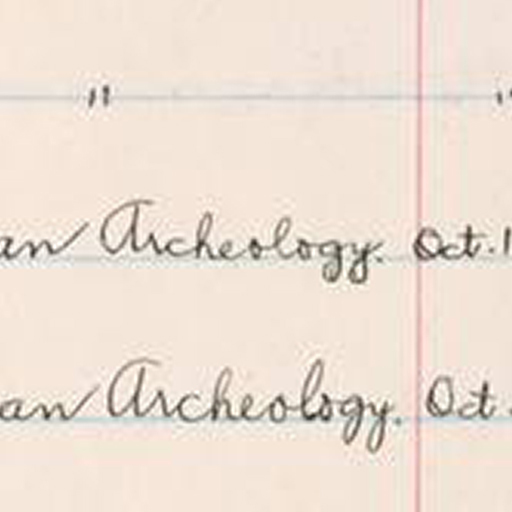 " "
an Archeology. Oct. 1
an Archeology. Oct.